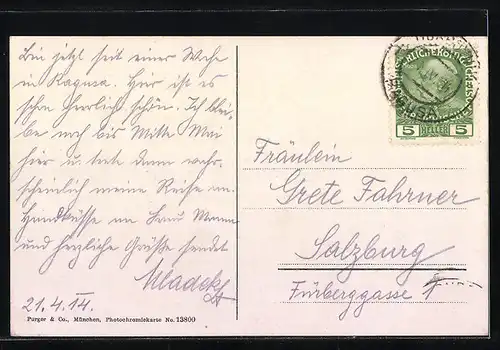 Bin jetzt seit einer Woche
in Ragusa. Hier ist es
schon herrlich schön. Ich blei-
be noch bis Mitte Mai
hier u. trete dann wahr-
scheinlich meine Reise an.
Handküsse an Frau Mama
und herzliche Grüße sendet
Mladek
21.4.14.
Purger & Co., München, Photochromiekarte No. 13800
5 HELLER 5
Fräulein
Grete Fahrner
Salzburg
Fürberggasse 1